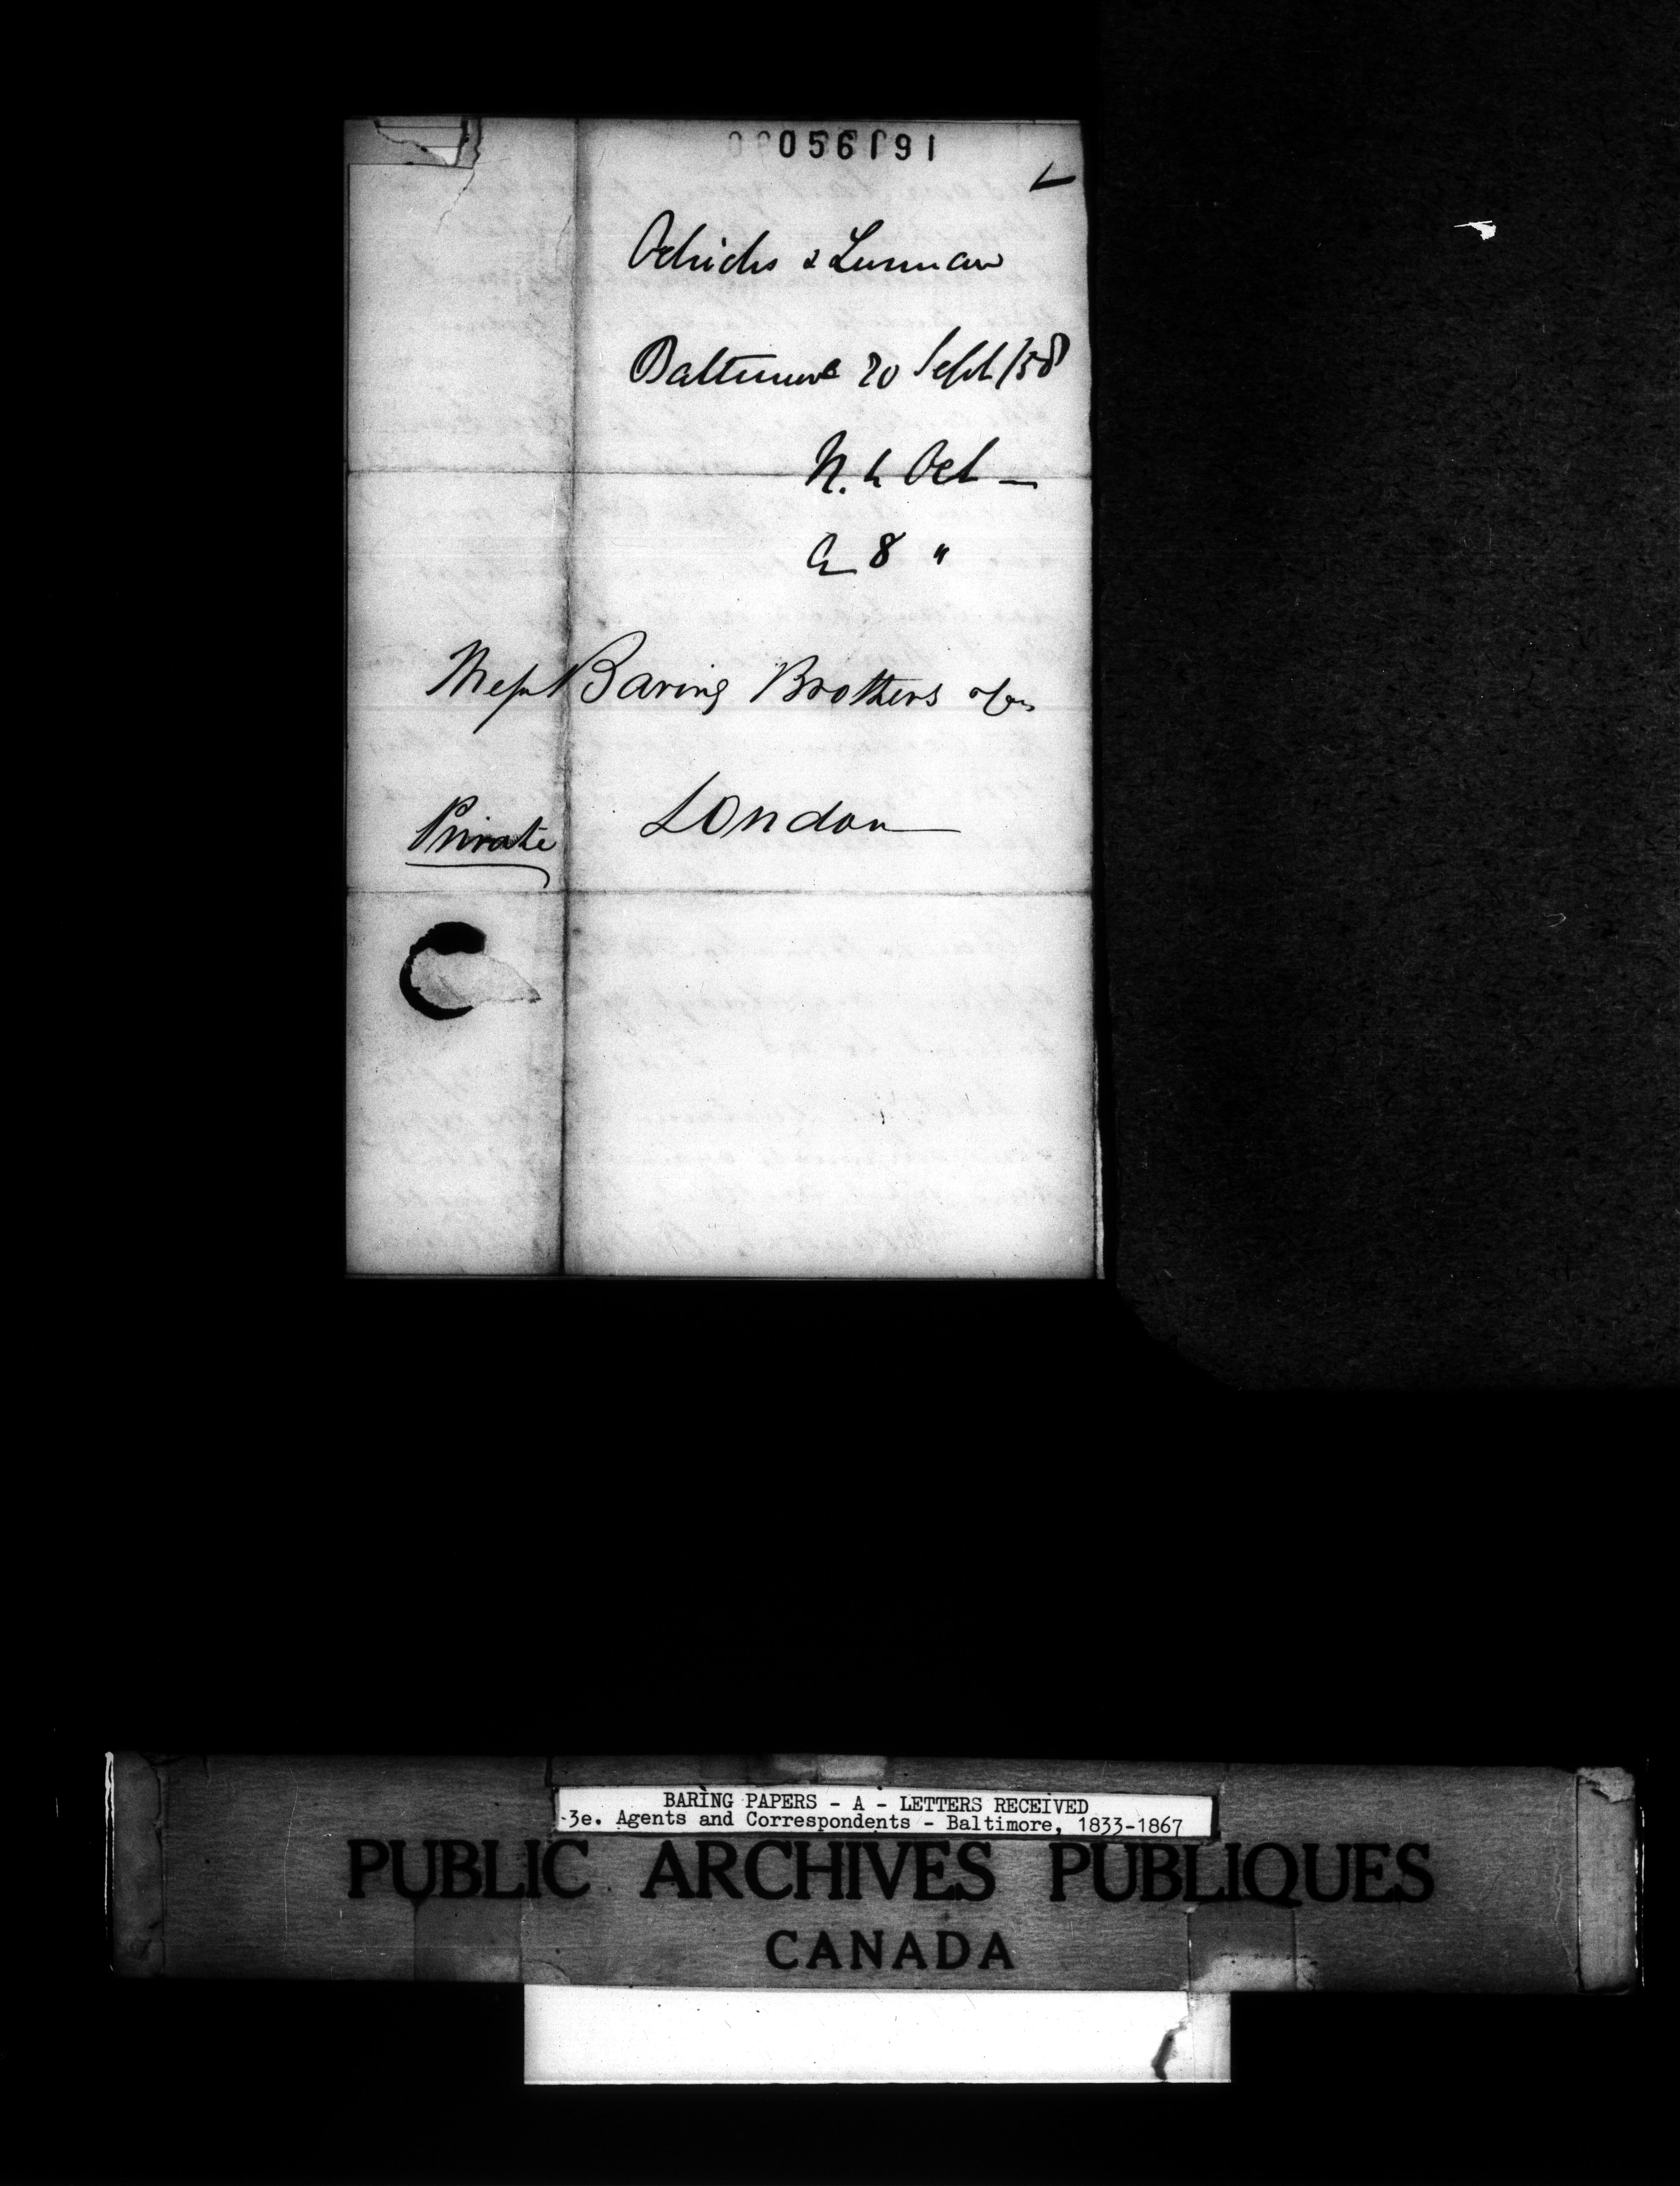 056191
Oelrichs & Lurman
Baltimore 20 Sept/58
Oct —
8 "
Messrs Baring Brothers & Co
London
Private
BARING PAPERS - A - LETTERS RECEIVED
3e. Agents and Correspondents - Baltimore, 1833-1867
PUBLIC ARCHIVES PUBLIQUES
CANADA